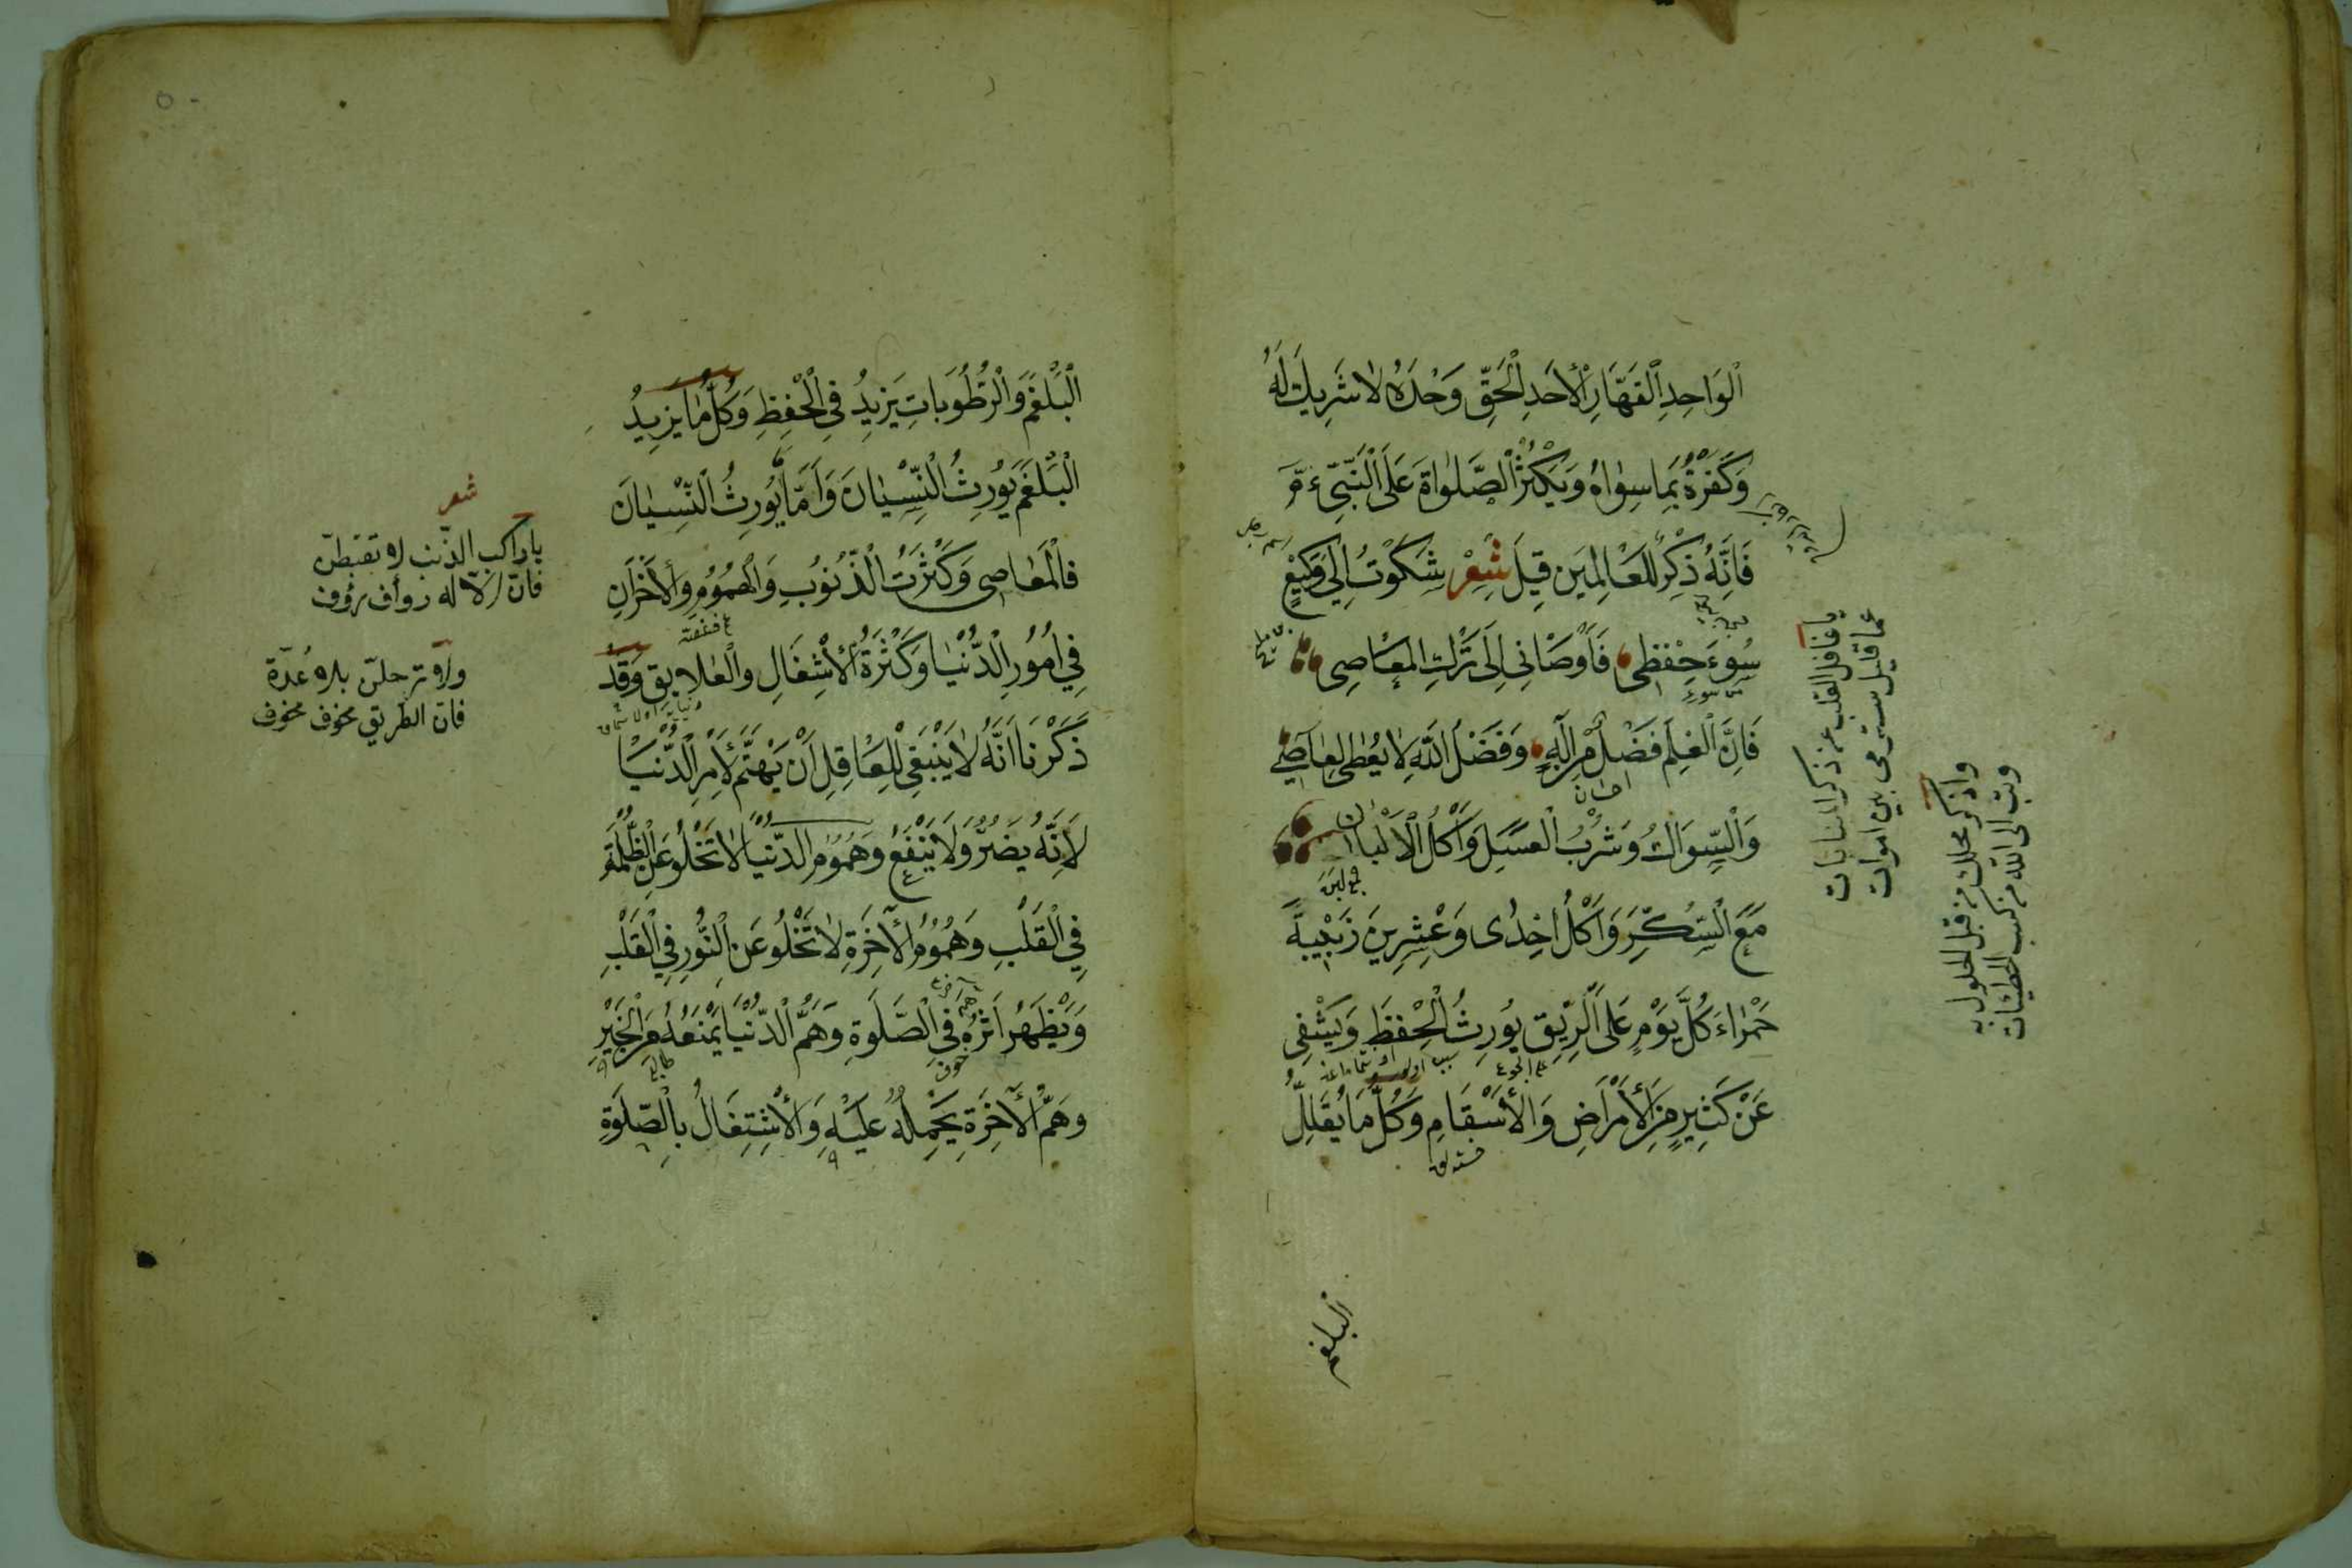 اَلْوَاحِدِ الْقَهَّارِ الْأَحَدِ الْحَقِّ وَحْدَهُ لَا شَرِيكَ لَهُ
وَكَفَرْتُ بِمَا سِوَاهُ وَيُكْثِرُ الصَّلَوَاةَ عَلَى النَّبِيِّ
فَاِنَّهُ ذِكْرٌ لِلْعَالَمِينَ قِيلَ شِعْرٌ شَكَوْتُ اِلَى وَكِيعٍ
سُوءَ حِفْظِى فَاَوْصَانِى اِلَى تَرْكِ الْمَعَاصِى
فَاِنَّ الْعِلْمَ فَضْلٌ مِنْ اِلَهٍ وَفَضْلُ اللّٰهِ لَا يُعْطَى لِعَاصِى
وَالسِّوَاكُ وَشُرْبُ الْعَسَلِ وَاَكْلُ الْاَلْبَانِ
مَعَ السُّكَّرِ وَاَكْلُ اِحْدَى وَعِشْرِينَ زَبِيبَةً
حَمْرَاءَ كُلَّ يَوْمٍ عَلَى الرِّيقِ يُورِثُ الْحِفْظَ وَيَشْفِى
عَنْ كَثِيرٍ مِنَ الْأَمْرَاضِ وَالْأَسْقَامِ وَكُلُّ مَا يُقَلِّلُ
البلغم
يا غافل القلب عن ذكر المنايات
عما قليل سترمى بين اموات
واذكر محلك من قبل الحلول به
وتب الى الله من كسب الخطيئات
اَلْبَلْغَمَ وَالرُّطُوبَاتِ يَزِيدُ فِى الْحِفْظِ وَكُلُّ مَا يَزِيدُ
الْبَلْغَمَ يُورِثُ النِّسْيَانَ وَاَمَّا يُورِثُ النِّسْيَانَ
فَالْمَعَاصِى وَكَثْرَتُ الذُّنُوبِ وَالْهُمُومِ وَالْاَحْزَانِ
فِى اُمُورِ الدُّنْيَا وَكَثْرَةُ الْأَشْغَالِ وَالْعَلَايِقِ وَقَدْ
ذَكَرْنَا اَنَّهُ لَا يَنْبَغِى لِلْعَاقِلِ اَنْ يَهْتَمَّ لِأَمْرِ الدُّنْيَا
لِاَنَّهُ يَضُرُّ وَلَا يَنْفَعُ وَهُمُومُ الدُّنْيَا لَا تَخْلُو عَنِ الظُّلْمَةِ
فِى الْقَلْبِ وَهُمُومُ الْآخِرَةِ لَا تَخْلُو عَنِ النُّورِ فِى الْقَلْبِ
وَيَظْهَرُ اَثَرُهُ فِى الصَّلَوةِ وَهَمُّ الدُّنْيَا يَمْنَعُهُ مِنَ الْخَيْرِ
وَهَمُّ الْآخِرَةِ يَحْمِلُهُ عَلَيْهِ وَالْاِشْتِغَالُ بِالصَّلَوةِ
شعر
يا راكب الذنب لا تقنطن
فان الاله رؤف رؤف
ولا ترحلن بلا عدة
فان الطريق مخوف مخوف